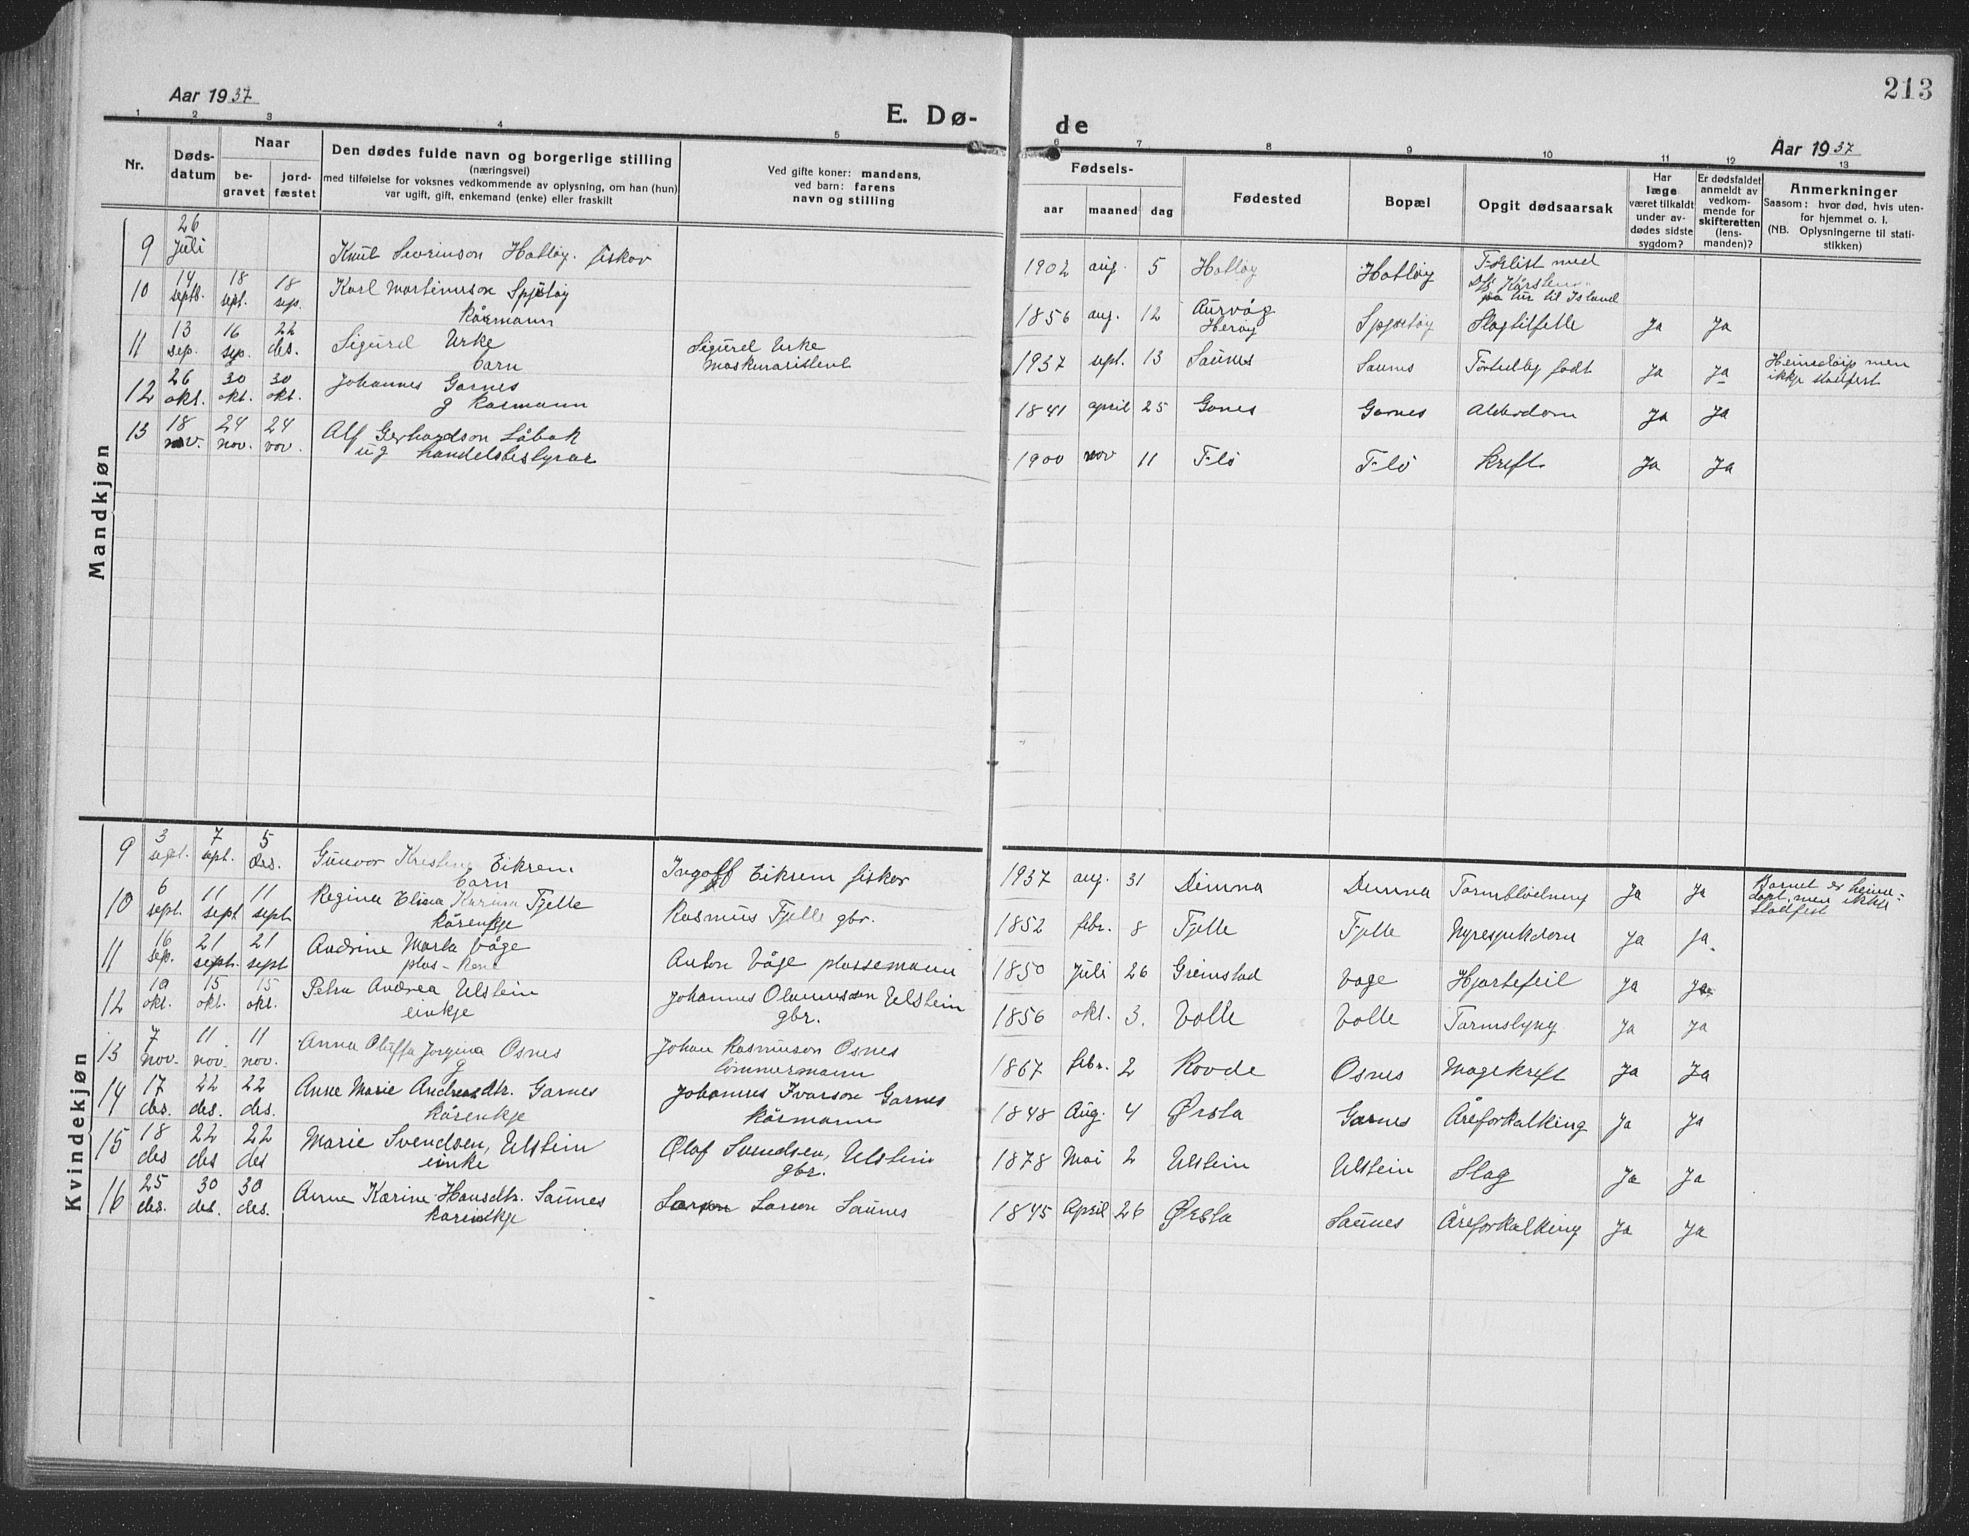 213
Aar 1937
E. Dø-
de
Aar 1937
1 2 3 4 5 6 7 8 9 10 11 12 13
Nr.
Døds-
datum
Naar
be-
gravet
jord-
fæstet
Den dødes fulde navn og borgerlige stilling
(næringsvei)
med tilføielse for voksnes vedkommende av oplysning, om han (hun)
var ugift, gift, enkemand (enke) eller fraskilt
Ved gifte koner: mandens,
ved barn: farens
navn og stilling
Fødsels-
aar maaned dag
Fødested
Bopæl
Opgit dødsaarsak
Har
læge
været tilkaldt
under av-
dødes sidste
sygdom?
Er dødsfaldet
anmeldt av
vedkom-
mende for
skifteretten
(lens-
manden)?
Anmerkninger
Saasom: hvor død, hvis uten-
for hjemmet o. l.
(NB. Oplysningerne til stati-
stikken)
Mandkjøn
9 26 Juli Knut Sevrinson Hatløy. fiskar 1902 aug. 5 Hatløy Hatløy Forlist med
på tur til Island
10 14 septb. 18 sept. 18 sep. Karl Martinusson Spjutøy
kårmann 1856 aug. 12 Aurvåg
Herøy Spjutøy Slagtilfelle Ja Ja
11 13 sep. 16 sep. 22 des. Sigurd Urke
barn Sigurd Urke
maskinaristent 1937 sept. 13 Saunes Saunes Fortidleg født Ja Ja Heimedøyp men
ikkje stadfest
12 26 okt. 30 okt. 30 okt. Johannes Garnes
g kårmann 1841 april 25 Garnes Garnes Alderdom Ja Ja
13 18 nov. 24 nov. 24 nov. Alf Gerhardson Låbak
ug handelsbestyrar 1900 nov 11 Flø Flø kreft Ja Ja
Kvindekjøn
9 3 sept. 7 sept. 5 des. Gunvor Kristine Eikrem
barn Ingolf Eikrem fiskar 1937 aug. 31 Dimna Dimna Tarmblødning Ja Ja Barnet er heime-
døpt, men ikkje
stadfest
10 6 sept. 11 sept 11 sept Regina Elina Karina Fjelle
kårenkje Rasmus Fjelle gbr. 1852 febr. 8 Fjelle Fjelle Nyresjukdom Ja Ja
11 16 sep. 21 sept. 21 sept Andrine Marta Våge
plas-kone Anton Våge plassemann 1850 Juli 26 Grimstad Våge Hjartefeil Ja Ja
12 10 okt. 15 okt. 15 okt. Petra Andrea Ulstein
einkje Johannes Olaussen Ulstein
gbr. 1856 okt. 3. Volle Volle Tarmslyng Ja Ja
13 7 nov. 11 nov. 11 nov. Anna Oluffa Jorgina Osnes
g Johan Rasmusson Osnes
tömmermann 1867 febr. 2 Rovde Osnes Magekreft Ja Ja
14 17 des. 22 des. 22 des. Anne Marie Andreasdtr. Garnes
kårenkje Johannes Ivarson Garnes
kårmann 1848 Aug. 4 Ørsta Garnes Åreforkalking Ja Ja
15 18 des 22 des 22 des Marie Svendsen, Ulstein
einke Olaf Svendsen, Ulstein
gbr. 1878 Mai 2 Ulstein Ulstein Slag Ja Ja
16 25 des. 30 des. 30 des. Anne Karine Hansdtr. Saunes
kåreinkje Larson Saunes 1845 April 26 Ørsta Saunes Åreforkalking Ja Ja